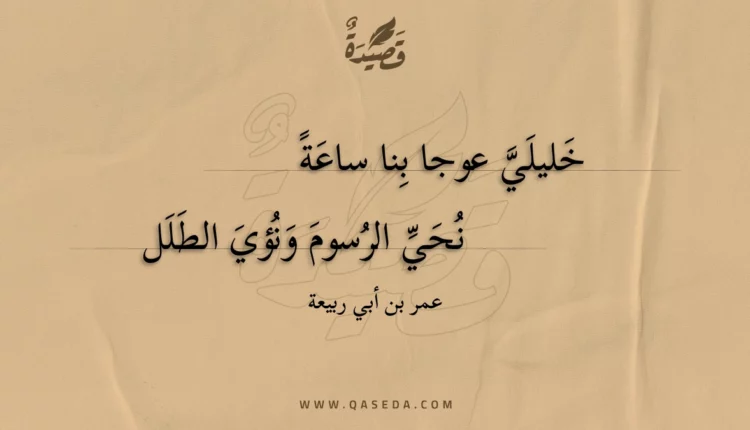 قَصِيْدَةٌ
خَليلَيَّ عوجا بِنا ساعَةً
نُحَيِّ الرُسومَ وَنُؤيَ الطَلَل
عمر بن أبي ربيعة
WWW.QASEDA.COM